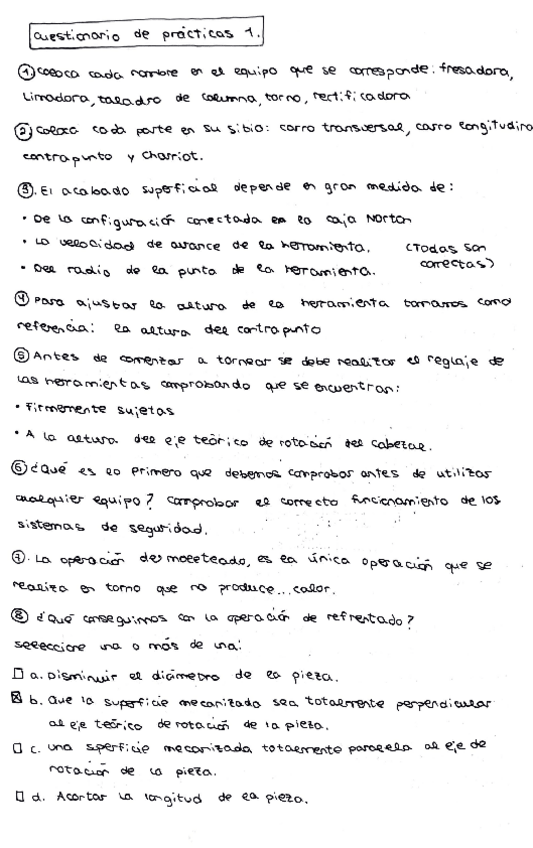 cuestionario de prácticas 1.
① coloca cada nombre en el equipo que se corresponde: fresadora,
Limadora, taladro de columna, torno, rectificadora
② coloca cada parte en su sitio: carro transversal, carro longitudin
contrapunto y charriot.
③. El acabado superficial depende en gran medida de:
• De la configuración conectada en la caja Norton
• La velocidad de avance de la herramienta. (Todas son
• Del radio de la punta de la herramienta. correctas)
④ Para ajustar la altura de la herramienta tomamos como
referencia: la altura del contrapunto
⑤ Antes de comenzar a tornear se debe realizar el reglaje de
las herramientas comprobando que se encuentran:
• Firmemente sujetas
• A la altura del eje teórico de rotación del cabezal.
⑥ ¿Qué es lo primero que debemos comprobar antes de utilizar
cualquier equipo? comprobar el correcto funcionamiento de los
sistemas de seguridad.
⑦. La operación de moleteado, es la única operación que se
realiza en torno que no produce... calor.
⑧ ¿Qué conseguimos con la operación de refrentado?
seleccione una o más de una:
☐ a. Disminuir el diámetro de la pieza.
☒ b. Que la superficie mecanizada sea totalmente perpendicular
al eje teórico de rotación de la pieza.
☐ c. una sperficie mecanizada totalmente paralela al eje de
rotación de la pieza.
☐ d. Acortar la longitud de la pieza.